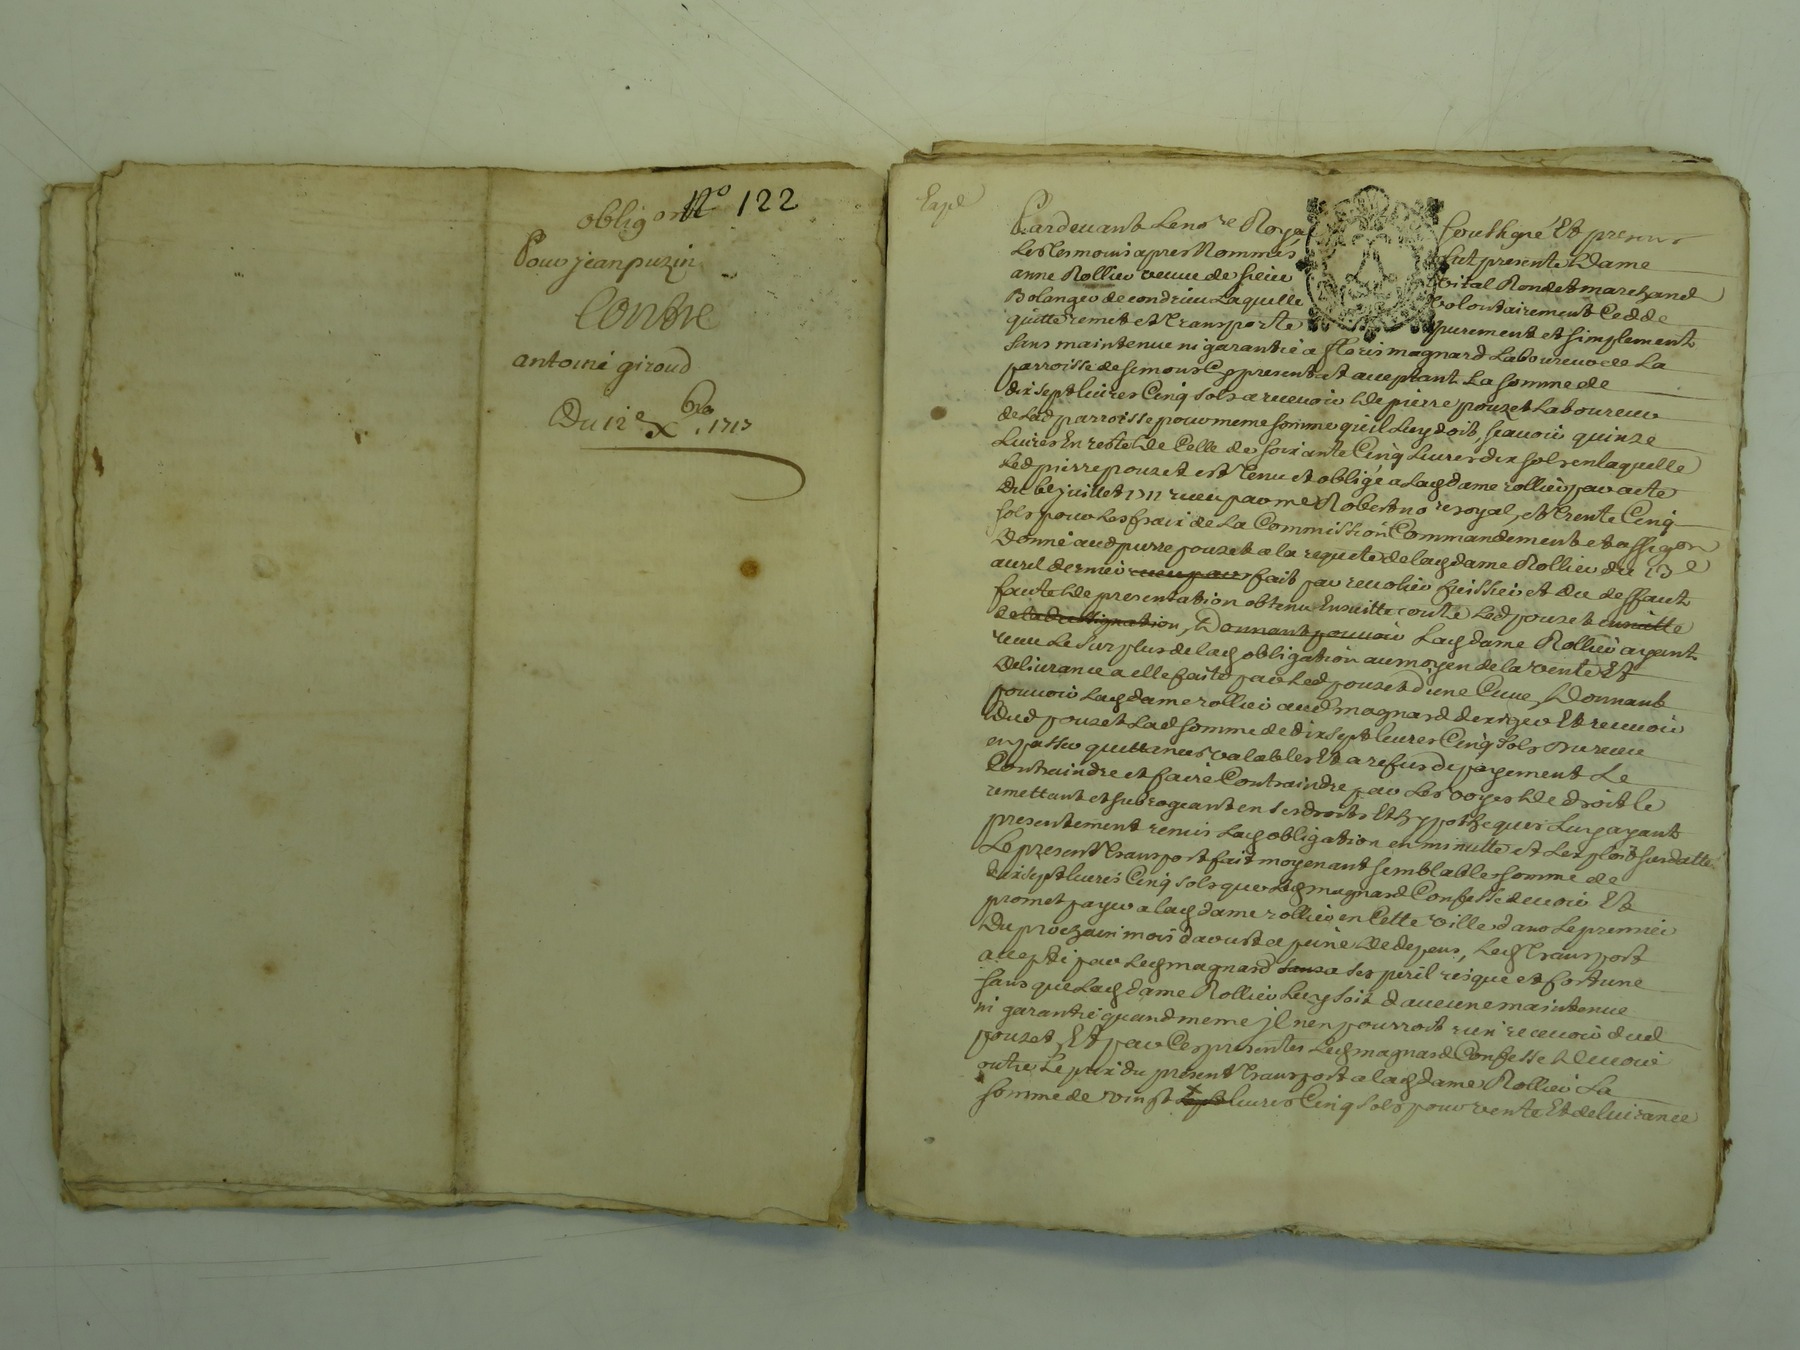 obligon
No 122
Pour jean puzin
Contre
antoine giroud
Du 12e Xbre 1717
Expd
Pardevant Le nore Royal soussigné Et presens
Les tesmoins apres Nommés fut presente Dame
anne Rollier veuve de sieur Vital Rondet marchand
Bolanger de condrieu Laquelle volontairement Cedde
quitte remet et transporte purement et simplement
sans maintenue ni garantie a fleris magnard Laboureur de La
parroisse de simons Cy present et aceptant La somme de
dix sept livres Cinq sols a recevoir de pierre pouzet Laboureur
de Lad parroisse pour meme somme quil Luy doit, scavoir quinze
Livres En reste de Celle de soixante Cinq Livres dix sols en laquelle
Led pierre pouzet est tenu et obligé a Lad dame rollier par acte
du 6e juillet 1711 receu par me Robert nore royal, et trente Cinq
sols pour Les fraix de La Commission Commandement et assigon
Donné aud pierre pouzet a la requete de lad dame Rollier du 13e
avril dernier receu par fait par revolier huissier et du deffaut
faute de presentation obtenu Ensuitte contre Led pouzet ensuitte
de lad assignation, Donnant pouvoir Lad dame Rollier ayant
receu Le surplus de lad obligation au moyen de la vente Et
Delivrance a elle faite par Led pouzet d'une Cuve, Donnant
pouvoir Lad dame rollier aud magnard d'exiger Et recevoir
dud pouzet Lad somme de dix sept livres Cinq sols Du receu
en passer quittances valables Et a refus de payement Le
Contraindre et faire Contraindre par Les voyes de droit le
remettant et subrogeant en ses droits Et hypotheques Luy ayant
presentement remis Lad obligation en minutte et Lexploit susdatté
Le present transport fait moyenant semblable somme de
dix sept livres Cinq sols que Led magnard Confesse devoir Et
promet payer a lad dame rollier en Cette ville dans Le premier
Du prochain mois d'aoust a peine de depens, Led transport
accepté par Led magnard sans a ses peril risque et fortune
sans que Lad dame Rollier Luy soit d'aucune maintenue
ni garantie quand meme jl nen pourroit rien recevoir dud
pouzet, Et par Ces presentes Led magnard Confesse devoir
outre Le prix du present transport a lad dame Rollier La
somme de vingt sept livres Cinq sols pour vente Et delivrance